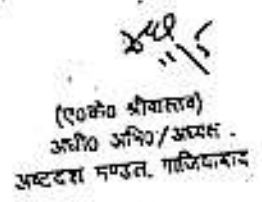 (ए०के० श्रीवास्तव)
अधी० अभि०/अध्यक्ष .
अष्टदश मण्डल, गाजियाबाद